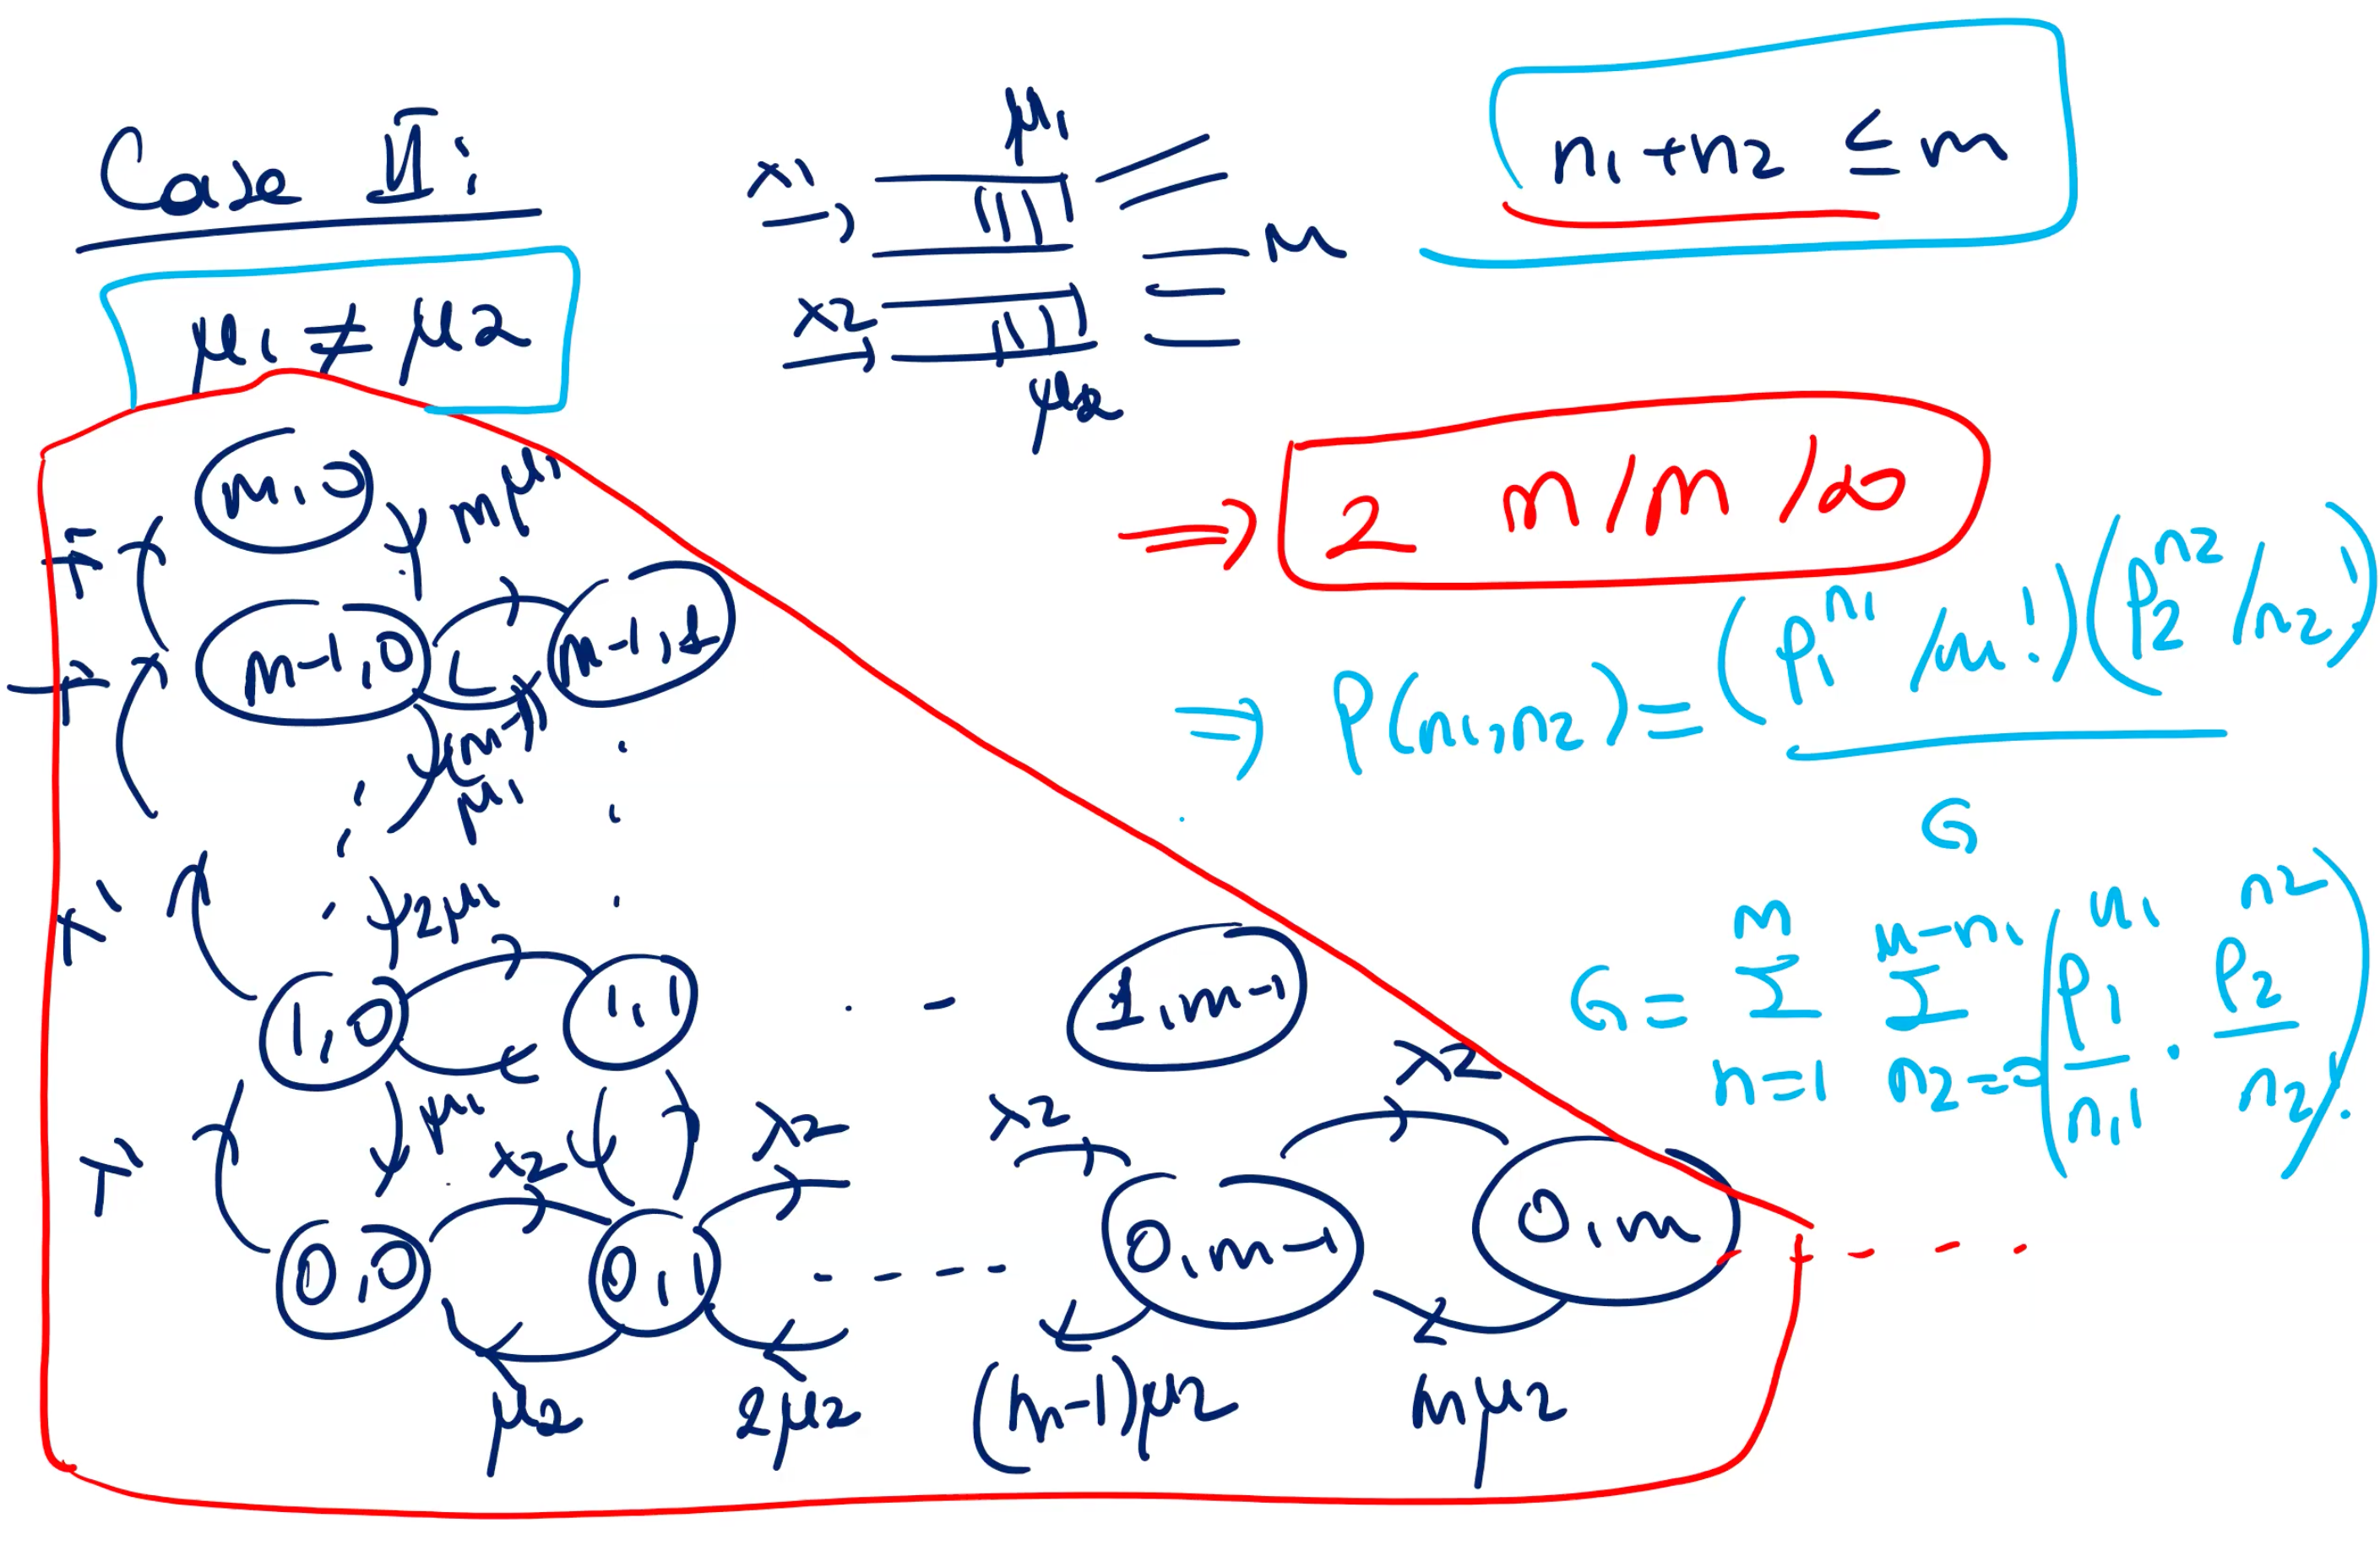 Case II:
μ1 ≠ μ2
λ1
μ1
m
λ2
μ2
n1 + n2 ≤ m
⇒ 2 M/M/∞
⇒ P(n1, n2) = (ρ1^n1 / n1!) (ρ2^n2 / n2!)
G
G = Σ^m_{n=1} Σ^{m-n1}_{n2=0} (ρ1^n1 / n1! · ρ2^n2 / n2!)
m, 0
mμ1
λ1
m-1, 0
m-1, 1
λ1
(m-1)
μ1
λ1
2μ1
1, 0
1, 1
1, m-1
λ1
μ1
λ2
λ2
λ2
λ2
0, 0
0, 1
0, m-1
0, m
μ2
2μ2
(m-1)μ2
mμ2